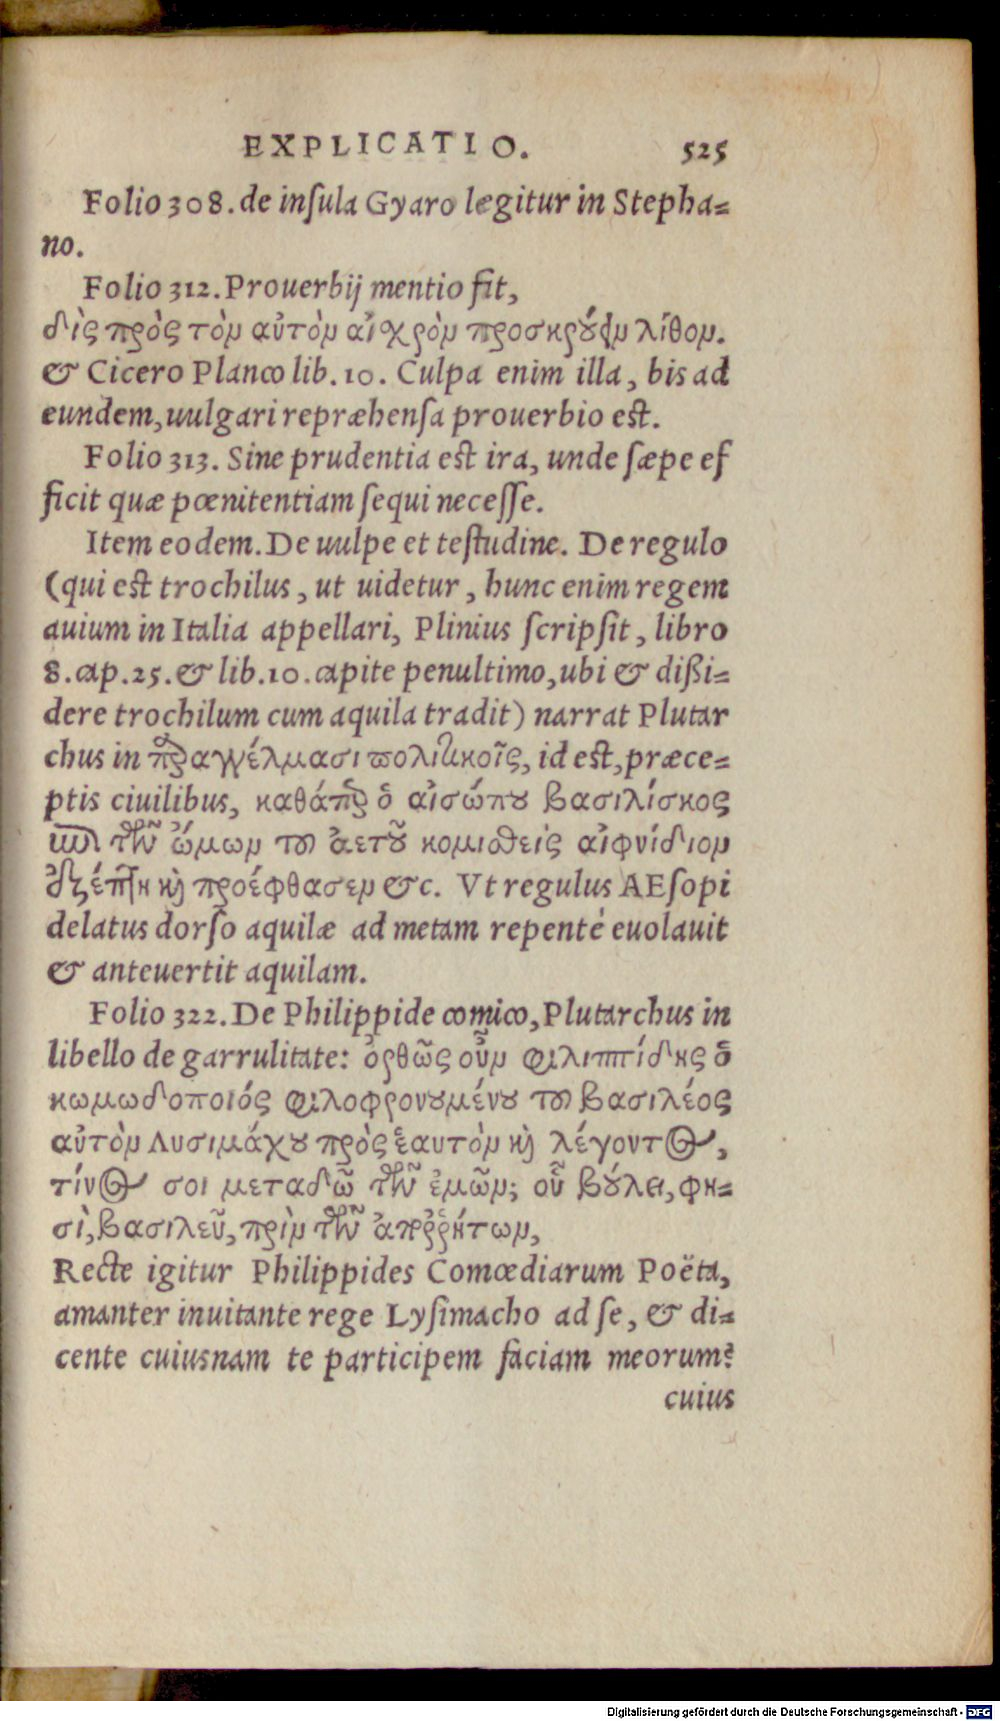 EXPLICATIO. 525
Folio 308. de inſula Gyaro legitur in Stepha=
no.
Folio 312. Prouerbij mentio fit,
δὶς πρὸς τὸν αὐτὸν αἰχρὸν προσκρούειν λίθον.
& Cicero Planco lib. 10. Culpa enim illa, bis ad
eundem, uulgari repræhenſa prouerbio est.
Folio 313. Sine prudentia est ira, unde ſæpe ef
ficit quæ pœnitentiam ſequi neceſſe.
Item eodem. De uulpe et teſtudine. De regulo
(qui est trochilus, ut uidetur, hunc enim regem
auium in Italia appellari, Plinius ſcripſit, libro
8. cap. 25. & lib. 10. capite penultimo, ubi & dißi=
dere trochilum cum aquila tradit) narrat Plutar
chus in παραγγέλμασι πολιτικοῖς, id est, præce=
ptis ciuilibus, καθάπερ ὁ αἰσώπου βασιλίσκος
ἐπὶ τῶν ὤμων τοῦ ἀετοῦ κομισθεὶς αἰφνίδιον
ἐξέπτη καὶ προέφθασεν &c. Vt regulus AEſopi
delatus dorſo aquilæ ad metam repentè euolauit
& anteuertit aquilam.
Folio 322. De Philippide comico, Plutarchus in
libello de garrulitate: ὀρθῶς οὖν φιλιππίδης ὁ
κωμωδοποιός φιλοφρονουμένου τοῦ βασιλέος
αὐτὸν Λυσιμάχου πρὸς ἑαυτὸν καὶ λέγοντος,
τίνος σοι μεταδῶ τῶν ἐμῶν; οὗ βούλει, φη=
σὶ, βασιλεῦ, πρὶν τῶν ἀποῤῥήτων,
Recte igitur Philippides Comœdiarum Poëta,
amanter inuitante rege Lyſimacho ad ſe, & di=
cente cuiusnam te participem faciam meorum?
cuius
Digitalisierung gefördert durch die Deutsche Forschungsgemeinschaft - DFG